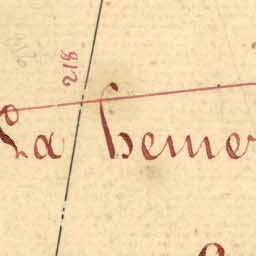 218
La heme